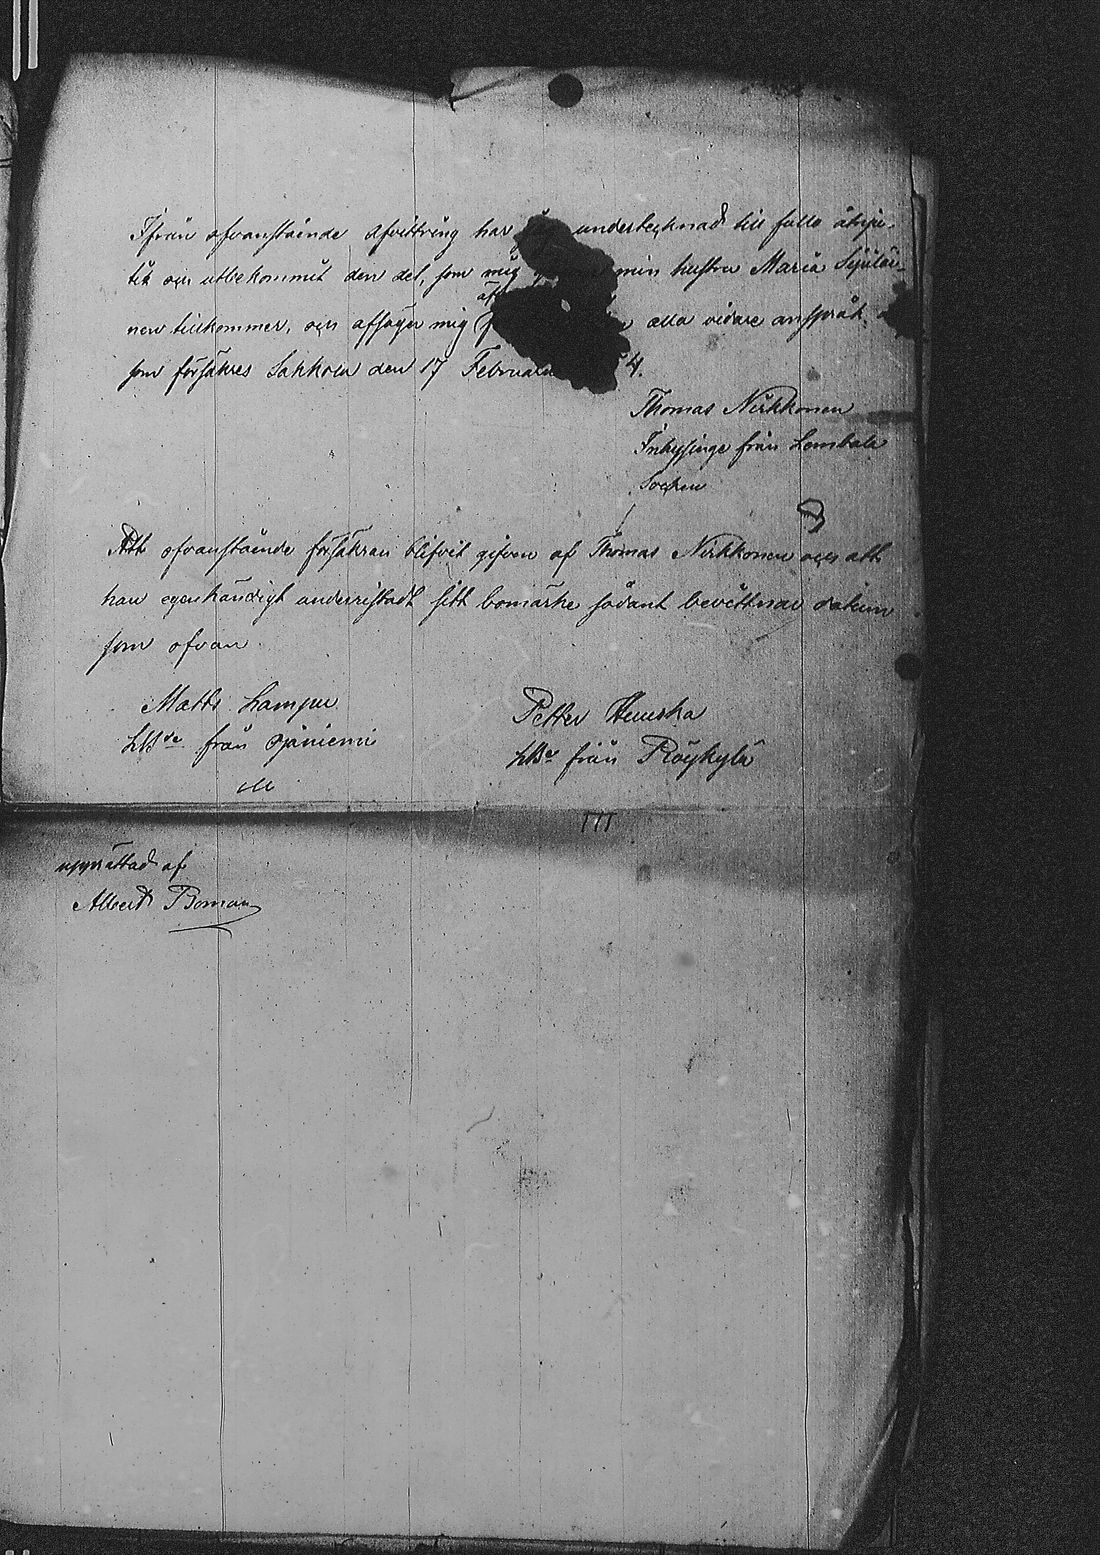 Ifrån ofvanstående afvittring har undertecknad till fullo åtnju-
tit och utbekommit den del, som mig min hustru Maria
nen tillkommer, och afsäger mig alla vidare anspråk
som försäkres Sakkola den 17 Februari 4.
Thomas Nirkkonen
Inhysinge från Lembala
Socken
Att ofvanstående försäkran blifvit gifven af Thomas Nirkkonen och att
han egenhändigt underristadt sitt bomärke sådant bevittnar datum
som ofvan
Matts Lampu
LBde från Ojaniemi
Petter Heuska
LBde från Röykylä
upprättad af
Albert Boman